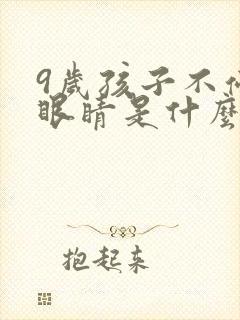 9歲孩子不
眼睛是什麼
抱起来